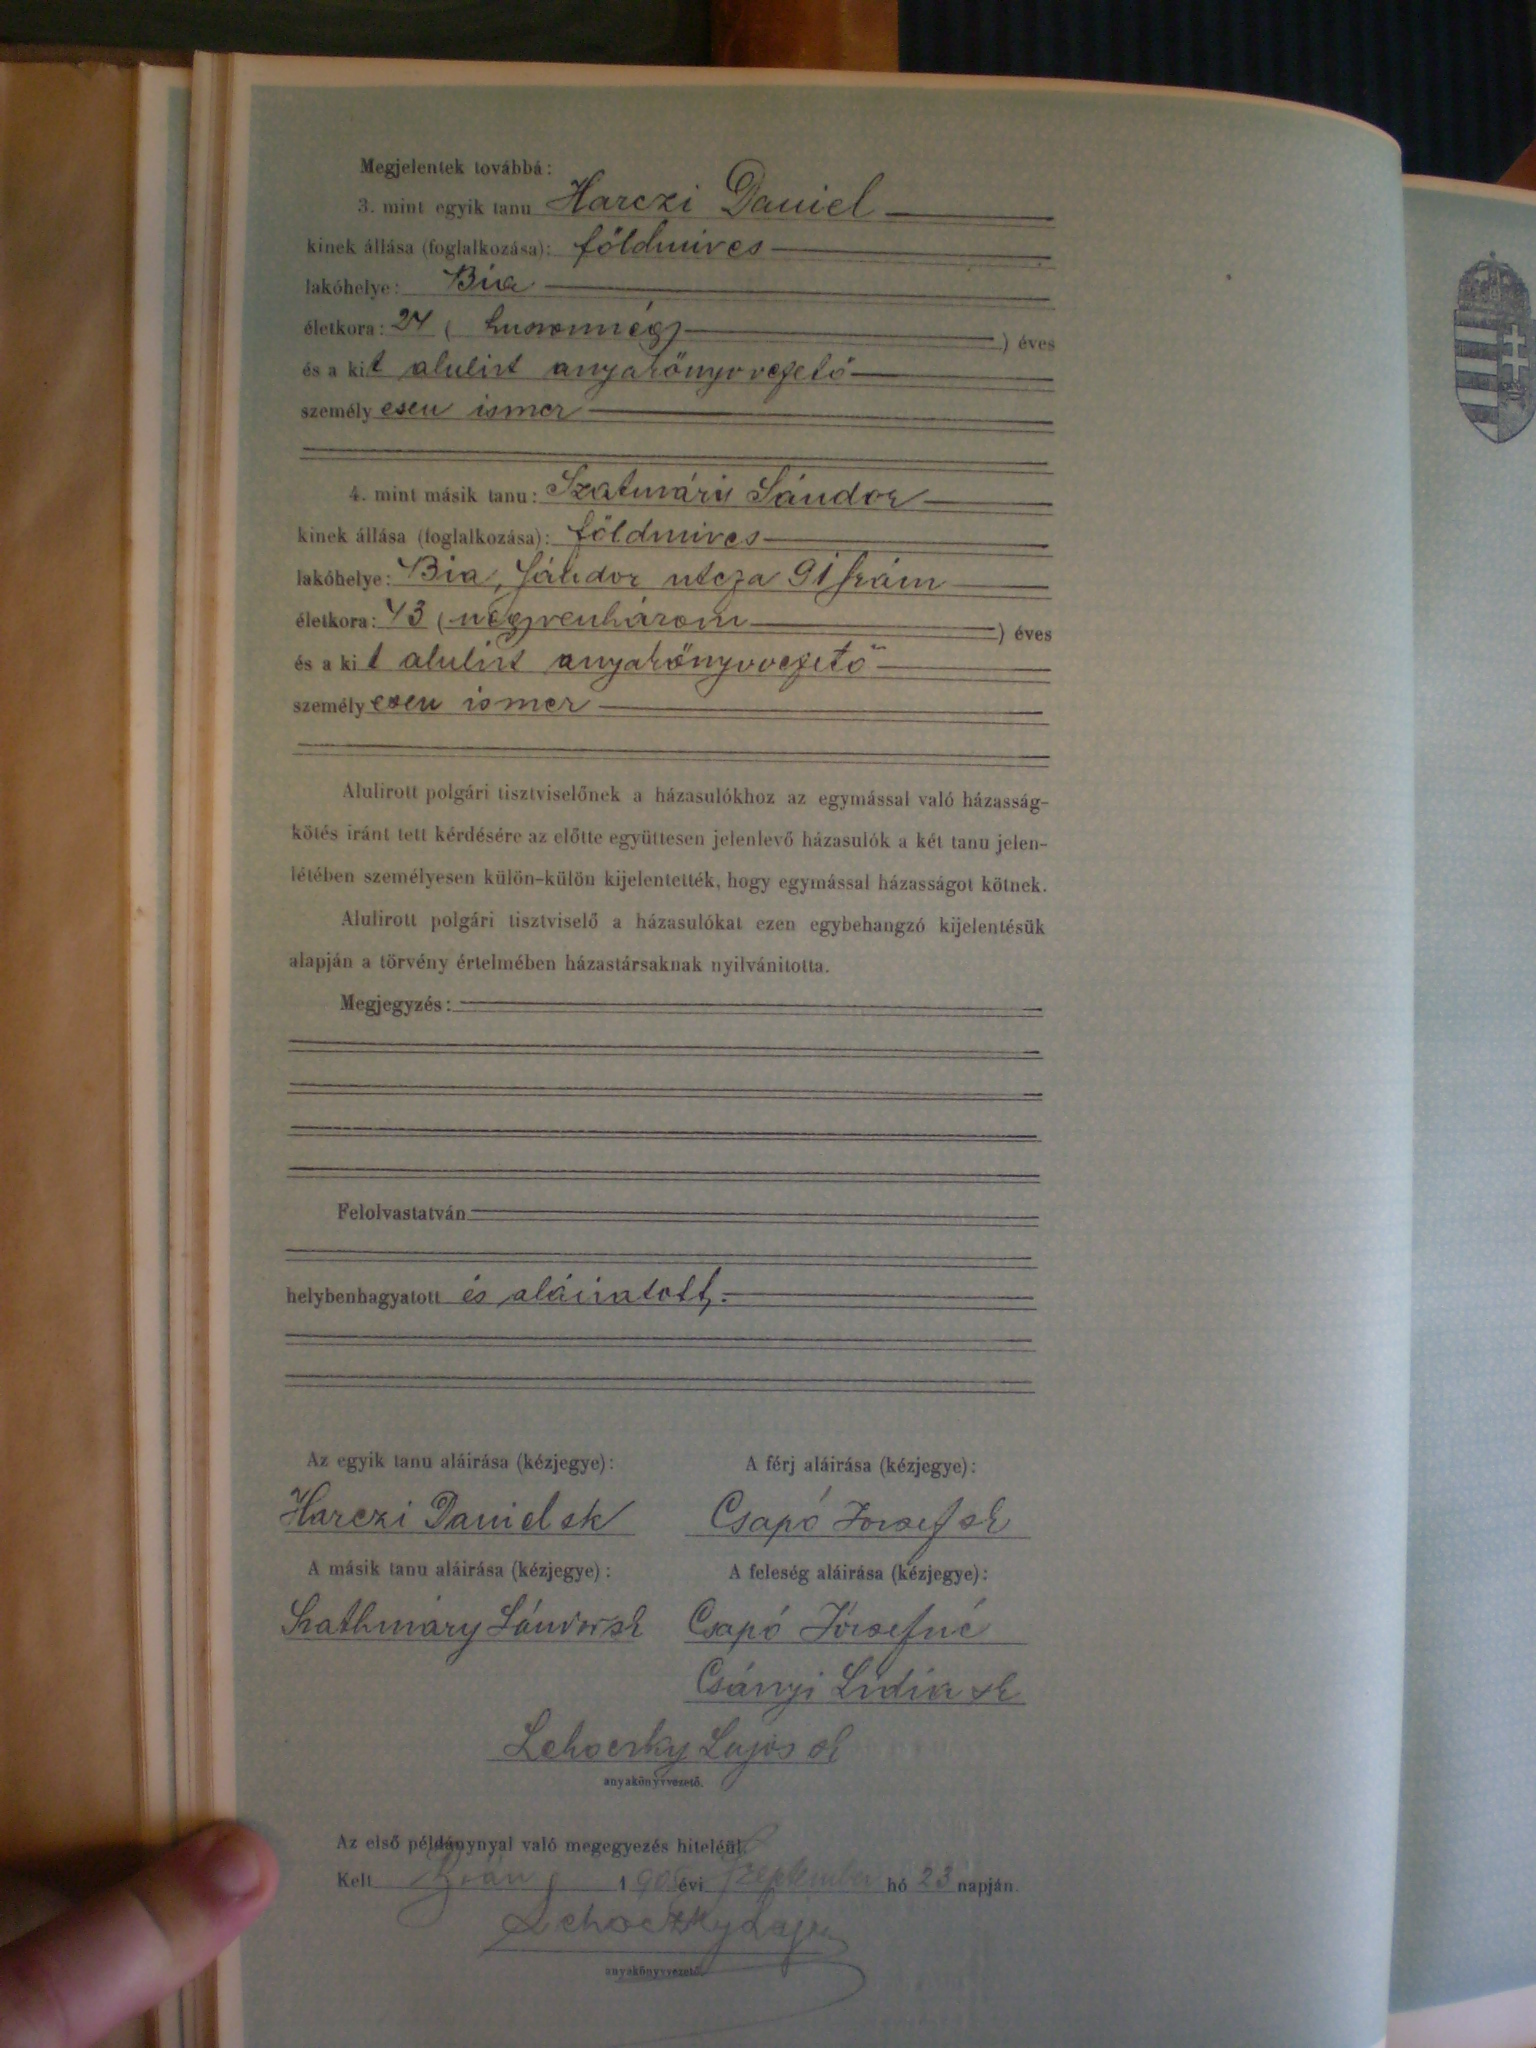 Megjelentek továbbá:
3. mint egyik tanu Harczi Daniel
kinek állása (foglalkozása): földmives
lakóhelye: Bia
életkora: 24 ( huszonnégy ) éves
és a kit alulirt anyakönyvvezető
személyesen ismer
4. mint másik tanu: Szatmári Sándor
kinek állása (foglalkozása): földmives
lakóhelye: Bia, Sándor utcza 91 szám
életkora: 43 ( negyvenhárom ) éves
és a kit alulirt anyakönyvvezető
személyesen ismer
Alulirott polgári tisztviselőnek a házasulókhoz az egymással való házasság-
kötés iránt tett kérdésére az előtte együttesen jelenlevő házasulók a két tanu jelen-
létében személyesen külön-külön kijelentették, hogy egymással házasságot kötnek.
Alulirott polgári tisztviselő a házasulókat ezen egybehangzó kijelentésük
alapján a törvény értelmében házastársaknak nyilvánitotta.
Megjegyzés:
Felolvastatván
helybenhagyatott és aláiratott.
Az egyik tanu aláirása (kézjegye): A férj aláirása (kézjegye):
Harczi Daniel sk Csapó József sk
A másik tanu aláirása (kézjegye): A feleség aláirása (kézjegye):
Szathmáry Sándor sk Csapó Józsefné
Csányi Lidia sk
Lehoczky Lajos sk
anyakönyvvezető.
Az első példánynyal való megegyezés hiteléül.
Kelt Bián, 190 évi szeptember hó 23 napján.
Lehoczky Lajos
anyakönyvvezető.